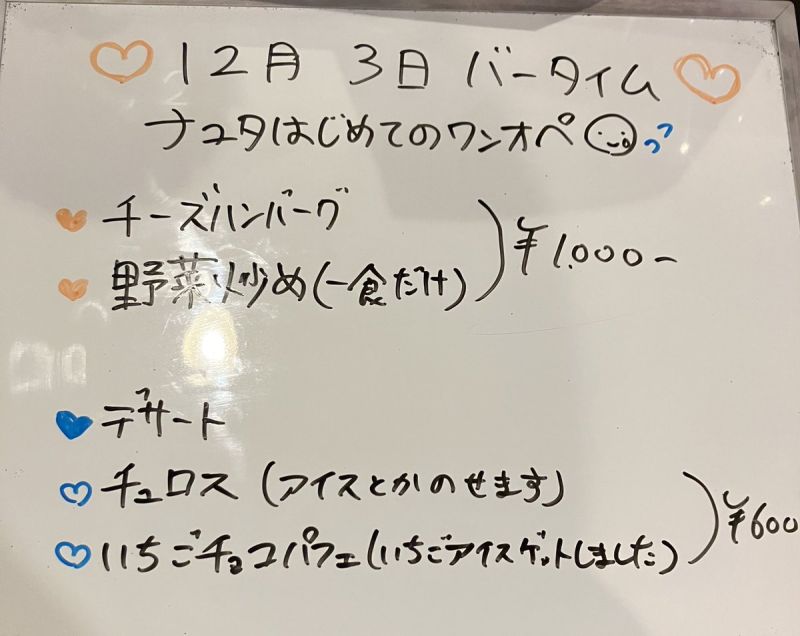 12月 3日 バータイム
ナユタはじめてのワンオペ
チーズハンバーグ
野菜炒め(一食だけ)
¥1,000-
デザート
チュロス (アイスとかのせます)
いちごチョコパフェ(いちごアイスゲットしました)
¥600